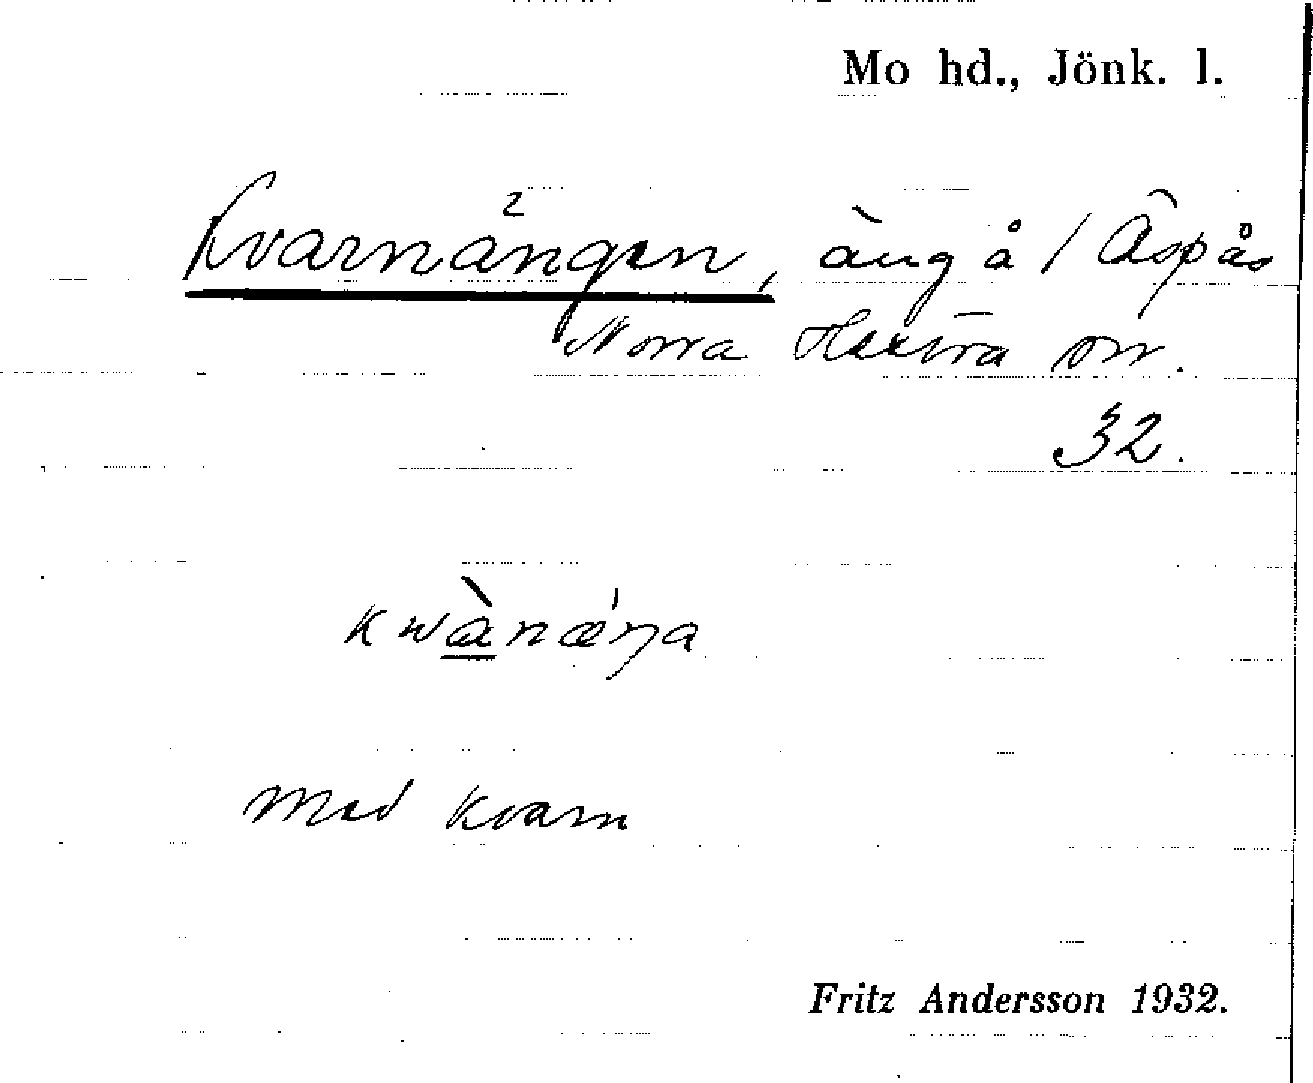 Mo hd., Jönk. l.
Kvarnängen, äng å / Äspås
Norra Hestra sn.
32.
kwànæ´ŋa
Med kvarn
Fritz Andersson 1932.